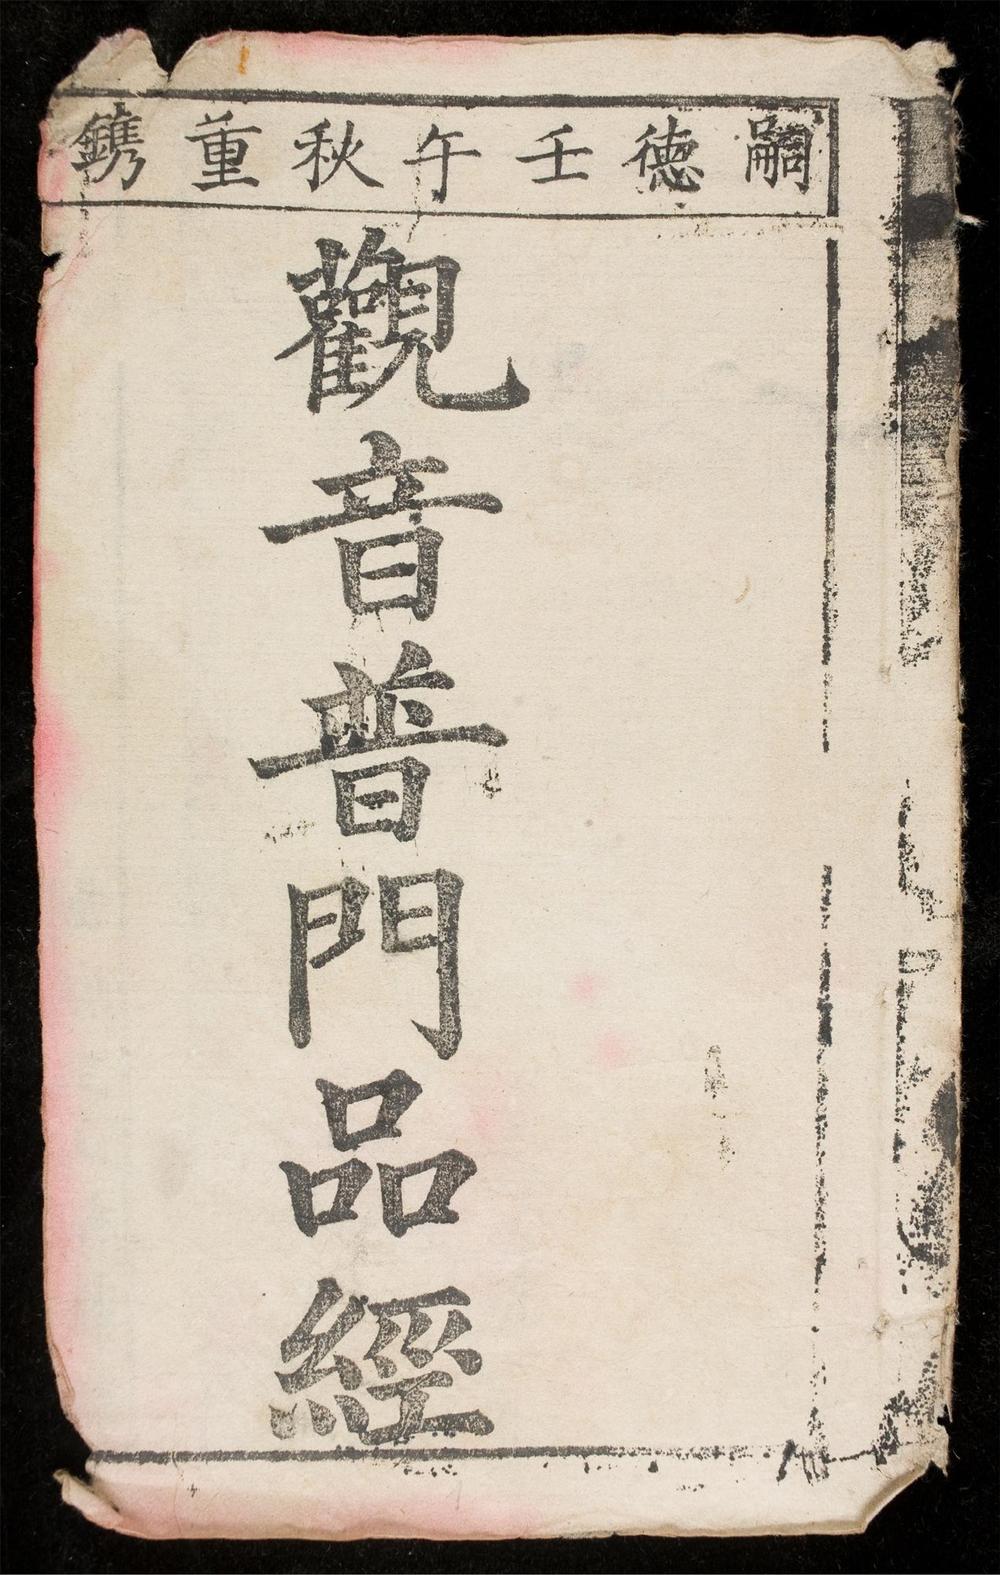 嗣德壬午秋重鐫
觀音普門品經